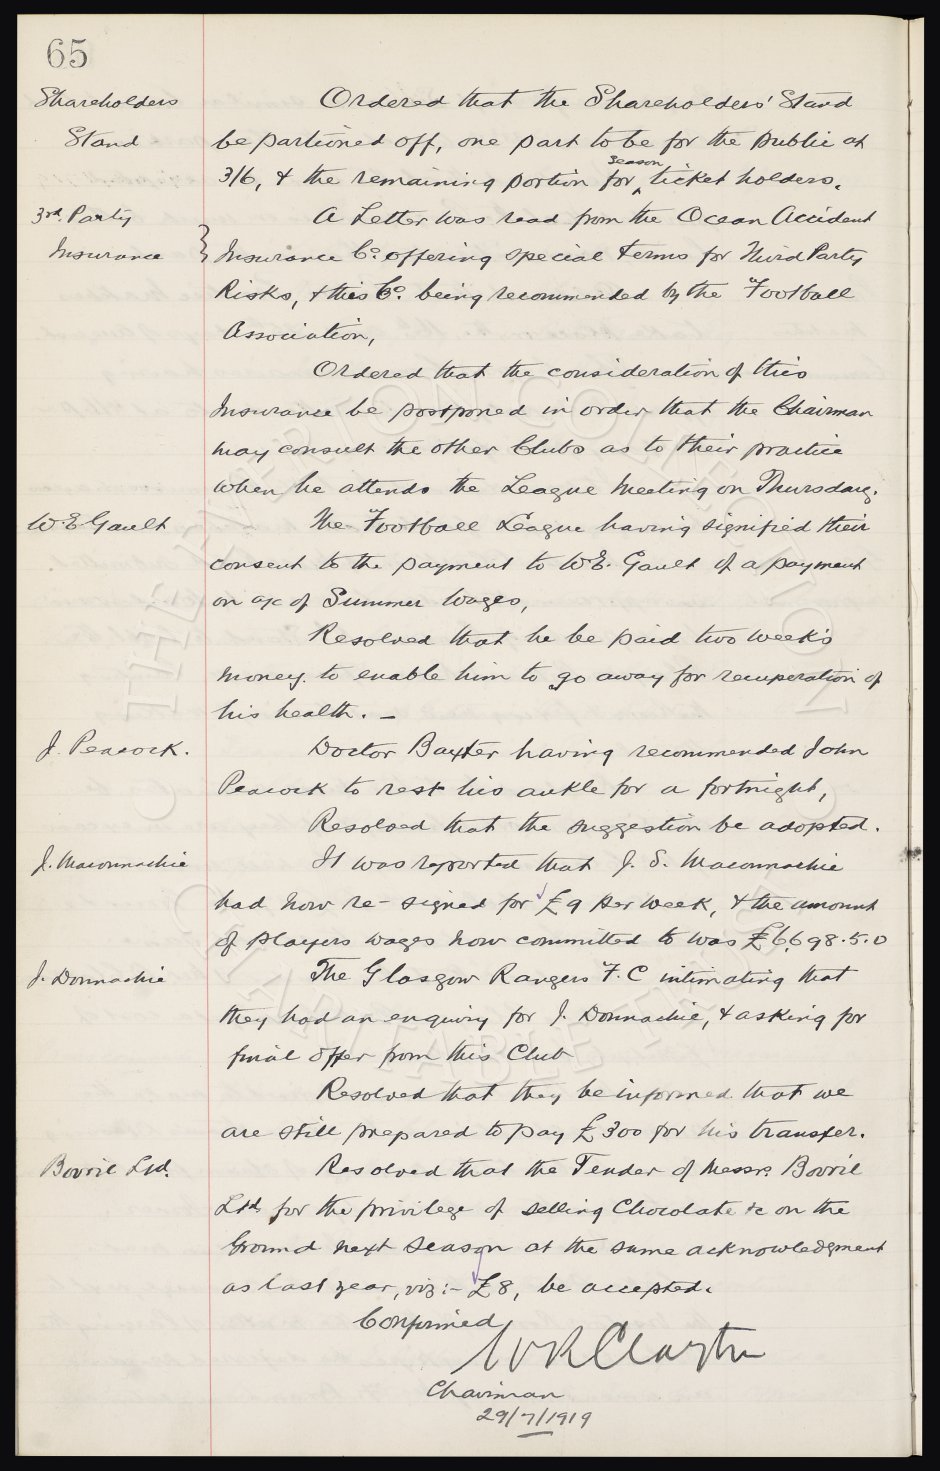 65
Shareholders Stand
Ordered that the Shareholders' Stand
be partioned off, one part to be for the public at
3/6, & the remaining portion for season ticket holders.
3rd. Party Insurance
A Letter was read from the Ocean Accident
Insurance Co. offering special terms for Third Party
Risks, & this Co. being recommended by the Football
Association,
Ordered that the consideration of this
Insurance be postponed in order that the Chairman
may consult the other Clubs as to their practice
when he attends the League Meeting on Thursday.
W E Gault
The Football League having signified their
consent to the payment to W.E. Gault of a payment
on a/c of Summer Wages,
Resolved that he be paid two week's
money. to enable him to go away for recuperation of
his health. –
J. Peacock.
Doctor Baxter having recommended John
Peacock to rest his ankle for a fortnight,
Resolved that the suggestion be adopted.
J. Maconnachie
It was reported that J. S. Maconnachie
had now re-signed for £9 per week, & the amount
of players wages now committed to was £6,698.5.0
J. Donnachie
The Glasgow Rangers F.C intimating that
they had an enquiry for J. Donnachie, & asking for
final offer from this Club
Resolved that they be informed that we
are still prepared to pay £300 for his transfer.
Bovril Ltd.
Resolved that the Tender of Messrs. Bovril
Ltd. for the privilege of selling Chocolate &c on the
Ground next season at the same acknowledgment
as last year, viz:- £8, be accepted.
Confirmed
W R Clayton
Chairman
29/7/1919